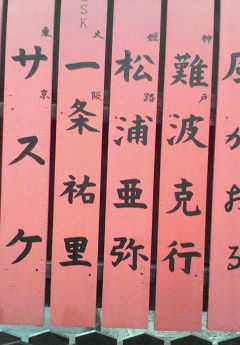 風かおる
神戸
難波克行
姫路
松浦亜弥
大阪
一条祐里
SK
東京
サスケ